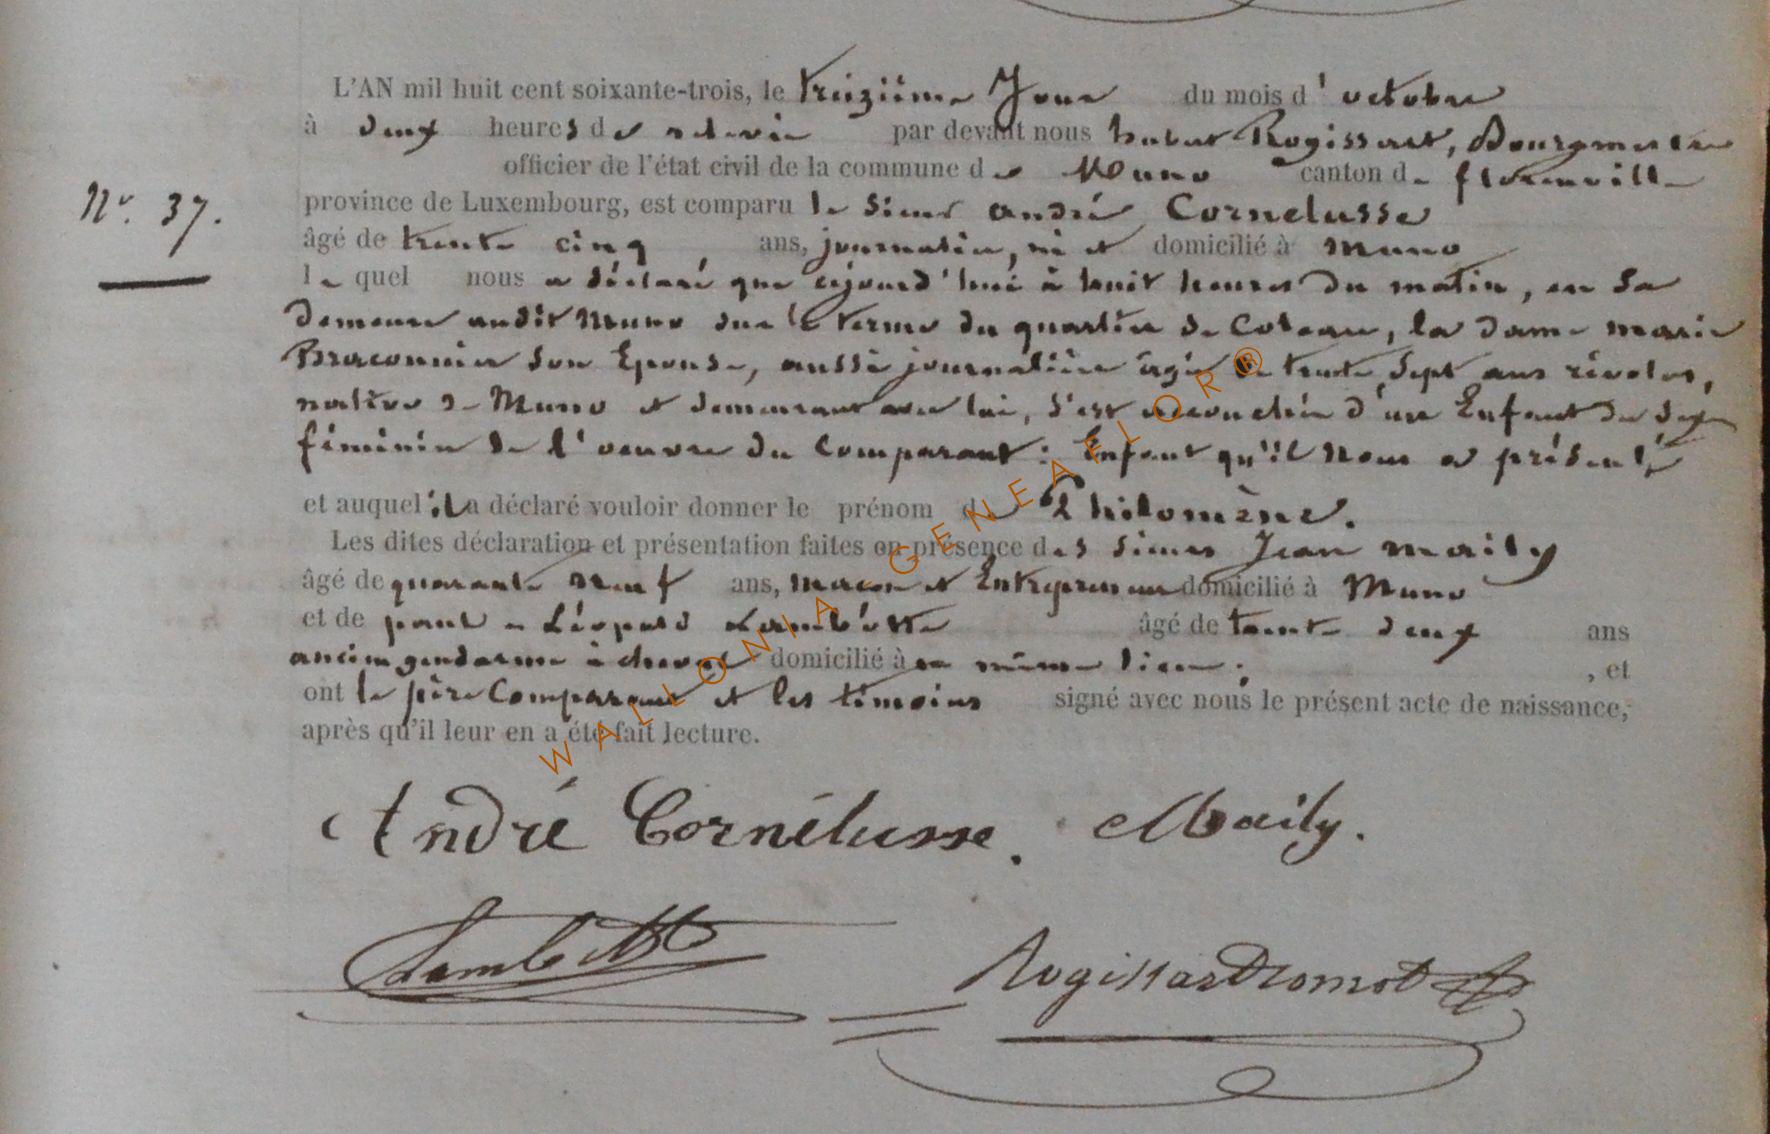 L'AN mil huit cent soixante-trois, le treizième Jour du mois d'octobre
à deux heures de relevée par devant nous hubert Rogissart, Bourgmestre
officier de l'état civil de la commune de Muno canton de florenville
N° 37.
province de Luxembourg, est comparu le Sieur andré Cornelusse
âgé de trente cinq ans, journalier, né et domicilié à Muno
lequel nous a déclaré que cejourd'hui à huit heures du matin, en sa
demeure audit Muno sur le terme du quartier de Coteau, la dame marie
Braconnier son Epouse, aussi journalière âgée de trente sept ans révolus,
native de Muno et demeurant avec lui, s'est accouchée d'un Enfant du sexe
féminin de l'oeuvre du Comparant : Enfant qu'il nous a présenté
et auquel il a déclaré vouloir donner le prénom de Philomène.
Les dites déclaration et présentation faites en présence des sieurs Jean maily
âgé de quarante neuf ans, macon et Entrepreneur domicilié à Muno
et de paul Léopold Lambotte âgé de trente deux ans
ancien gendarme à cheval domicilié à même lieu ; , et
ont le père Comparant et les témoins signé avec nous le présent acte de naissance,
après qu'il leur en a été fait lecture.
WALLONIA-GENEAFLOR®
André Cornélusse. Maily.
Lambotte Rogissart